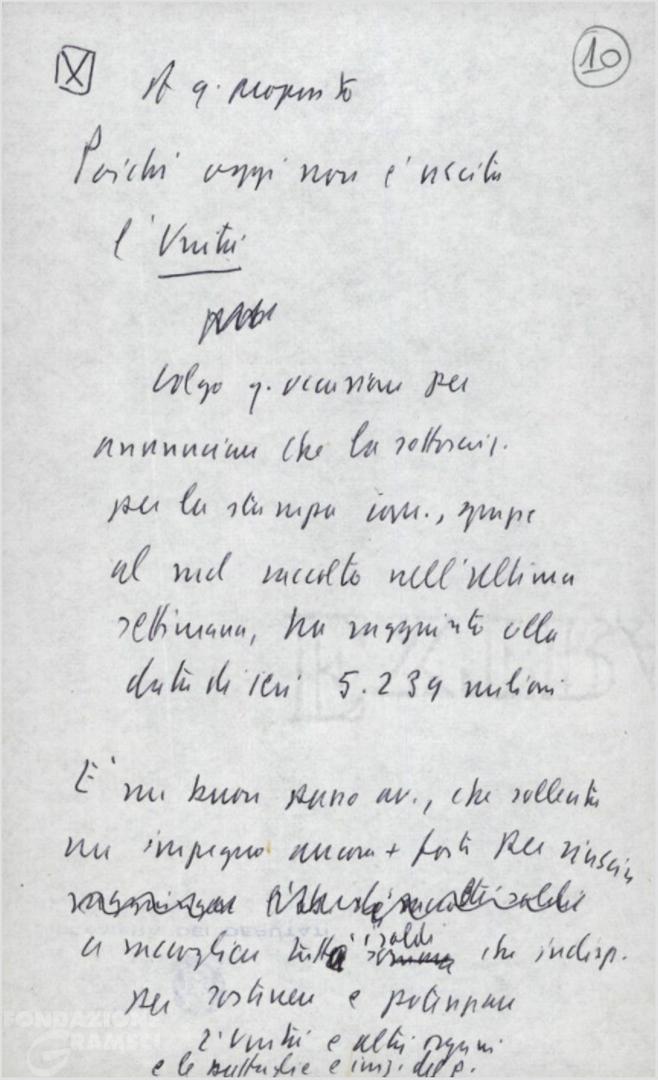 X 10
A q. proposito
Poiché oggi non è uscita
l'Unità
colgo q. occasione per
annunciare che la sottoscriz.
per la stampa com., grazie
al md raccolto nell'ultima
settimana, ha raggiunto alla
data di ieri 5.239 milioni
E' un buon passo av., che sollecita
un impegno ancora + forte per riuscire
a raccogliere tutti i soldi somma che indisp.
per sostenere e potenziare
l'Unità e altri organi
e le battaglie e iniz. del p.
FONDAZIONE
GRAMSCI